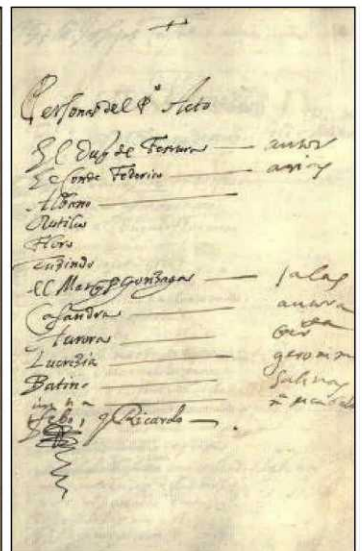 Personas del Pº Acto
El Duq de Ferrara — autor
El Conde Federico — arias
Albano —
Rutilio
Floro
Lucindo
El Marqs Gonzaga — salas
Casandra — autora
Aurora —
Lucrezia — geronima
Batino — salinas
Febo, y Ricardo —.